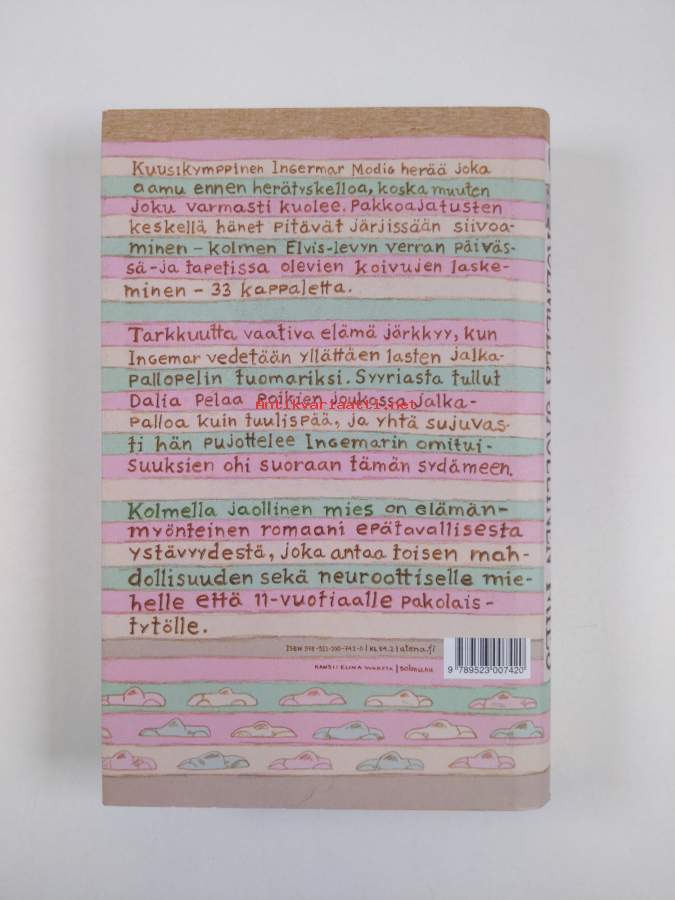 Kuusikymppinen Ingermar Modig herää joka
aamu ennen herätyskelloa, koska muuten
joku varmasti kuolee. Pakkoajatusten
keskellä hänet pitävät järjissään siivoa-
minen – kolmen Elvis-levyn verran päiväs-
sä – ja tapetissa olevien koivujen laske-
minen – 33 kappaletta.
Tarkkuutta vaativa elämä järkkyy, kun
Ingemar vedetään yllättäen lasten jalka-
pallopelin tuomariksi. Syyriasta tullut
Dalia pelaa poikien joukossa jalka-
palloa kuin tuulispää, ja yhtä sujuvas-
ti hän pujottelee Ingemarin omitui-
suuksien ohi suoraan tämän sydämeen.
Kolmella jaollinen mies on elämän-
myönteinen romaani epätavallisesta
ystävyydestä, joka antaa toisen mah-
dollisuuden sekä neuroottiselle mie-
helle että 11-vuotiaalle pakolais-
tytölle.
ISBN 978-952-300-742-0 | KL 84.2 | atena.fi
KANSI: ELINA WARSTA | solmu.nu
9 789523 007420
Antikvariaatti.net